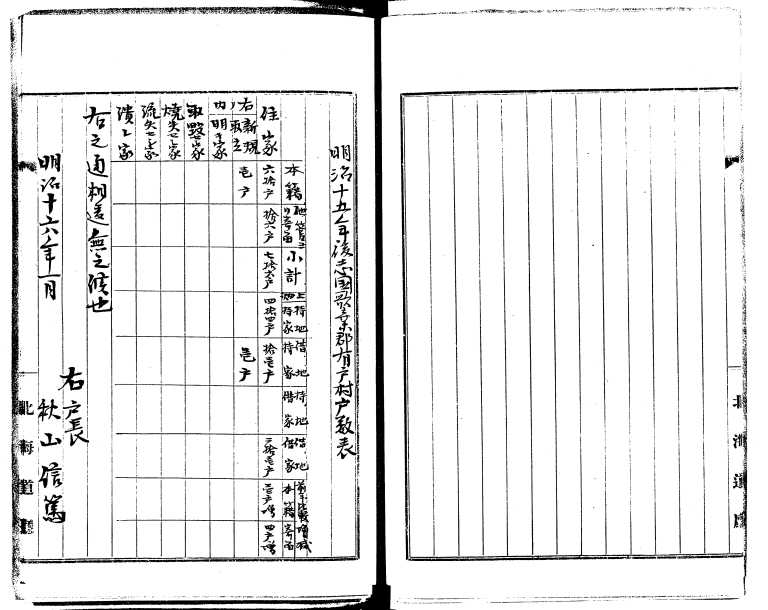 明治十五年後志國歌棄郡有戸村戸数表
本籍
小計
持地
持家
借地
持家
持地
借家
借地
借家
本籍
寄留
住家
六拾戸
拾六戸
七拾六戸
四拾四戸
拾壱戸
壱戸増
四戸増
右新規
内
明家
壱戸
壱戸
取毀家
焼失家
流失家
潰家
右之通相違無之候也
明治十六年一月
右戸長
秋山信篤
北海道廳
北海道廳